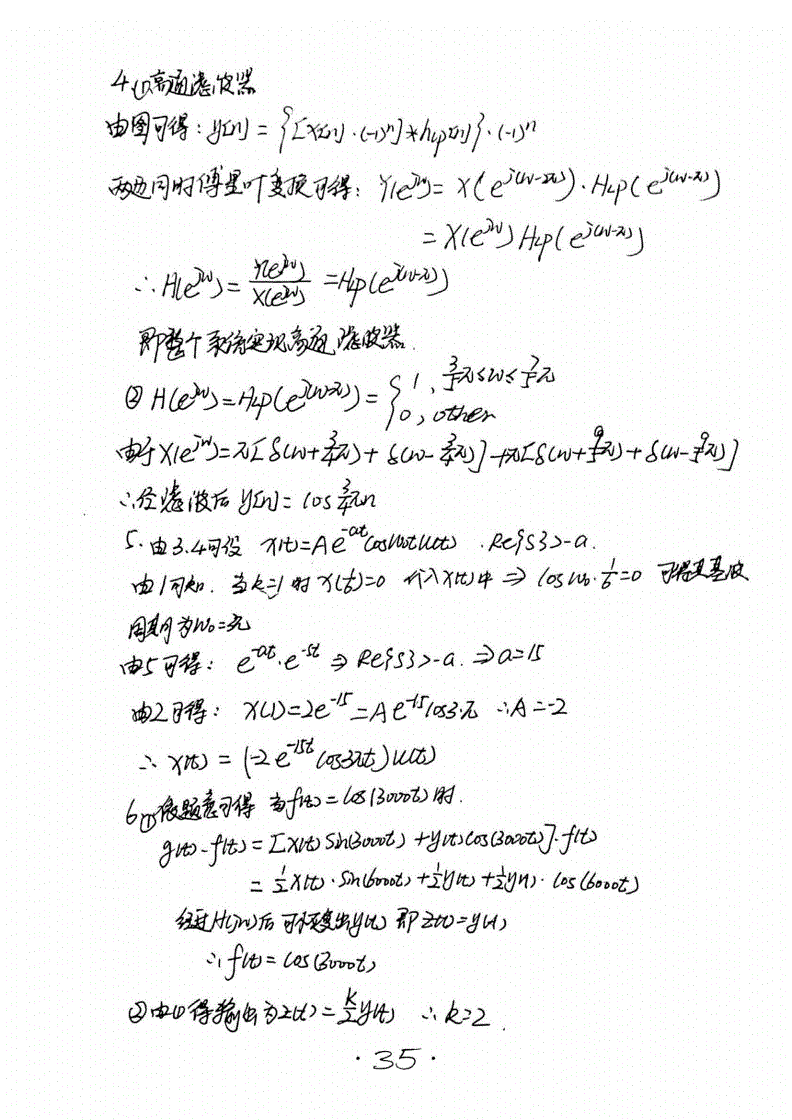 4.(1)高通滤波器
由图可得: y[n] = {[x[n]·(-1)ⁿ]*hlp[n]}·(-1)ⁿ
两边同时傅里叶变换可得: Y(e^{jw}) = X(e^{j(w-2π)})·Hlp(e^{j(w-π)})
= X(e^{jw})Hlp(e^{j(w-π)})
∴ H(e^{jw}) = Y(e^{jw})/X(e^{jw}) = Hlp(e^{j(w-π)})
即整个系统实现高通滤波器.
② H(e^{jw}) = Hlp(e^{j(w-π)}) = { 1, 3/5π≤w≤7/5π
0, other
由于X(e^{jw}) = π[δ(w+3/4π) + δ(w-3/4π)] + π[δ(w+9/5π) + δ(w-9/5π)]
∴经滤波后 y[n] = cos 3/4πn
5. 由3.4可设 x(t)=Ae^{-at}cosw₀t u(t) . Re{s}>-a.
由1可知. 当k=1时 x(1/6)=0 代入x(t)中 ⇒ cosw₀·1/6=0 可得其基波
周期为w₀=3π
由5可得: e^{-at}·e^{-5t} ⇒ Re{s}>-a. ⇒ a=15
由2可得: x(1)=2e^{-15}=Ae^{-15}cos3π ∴A=-2
∴ x(t) = (-2e^{-15t}cos3πt)u(t)
6.① 依题意可得 当f(t)=cos(3000t)时.
g(t)·f(t) = [x(t)sin(3000t) + y(t)cos(3000t)]·f(t)
= 1/2x(t)·sin(6000t) + 1/2y(t) + 1/2y(t)·cos(6000t)
经过H(jw)后可恢复出y(t) 即z(t)=y(t)
∴ f(t) = cos(3000t)
② 由(1)得输出为z(t) = k/2 y(t) ∴ k=2.
·35·